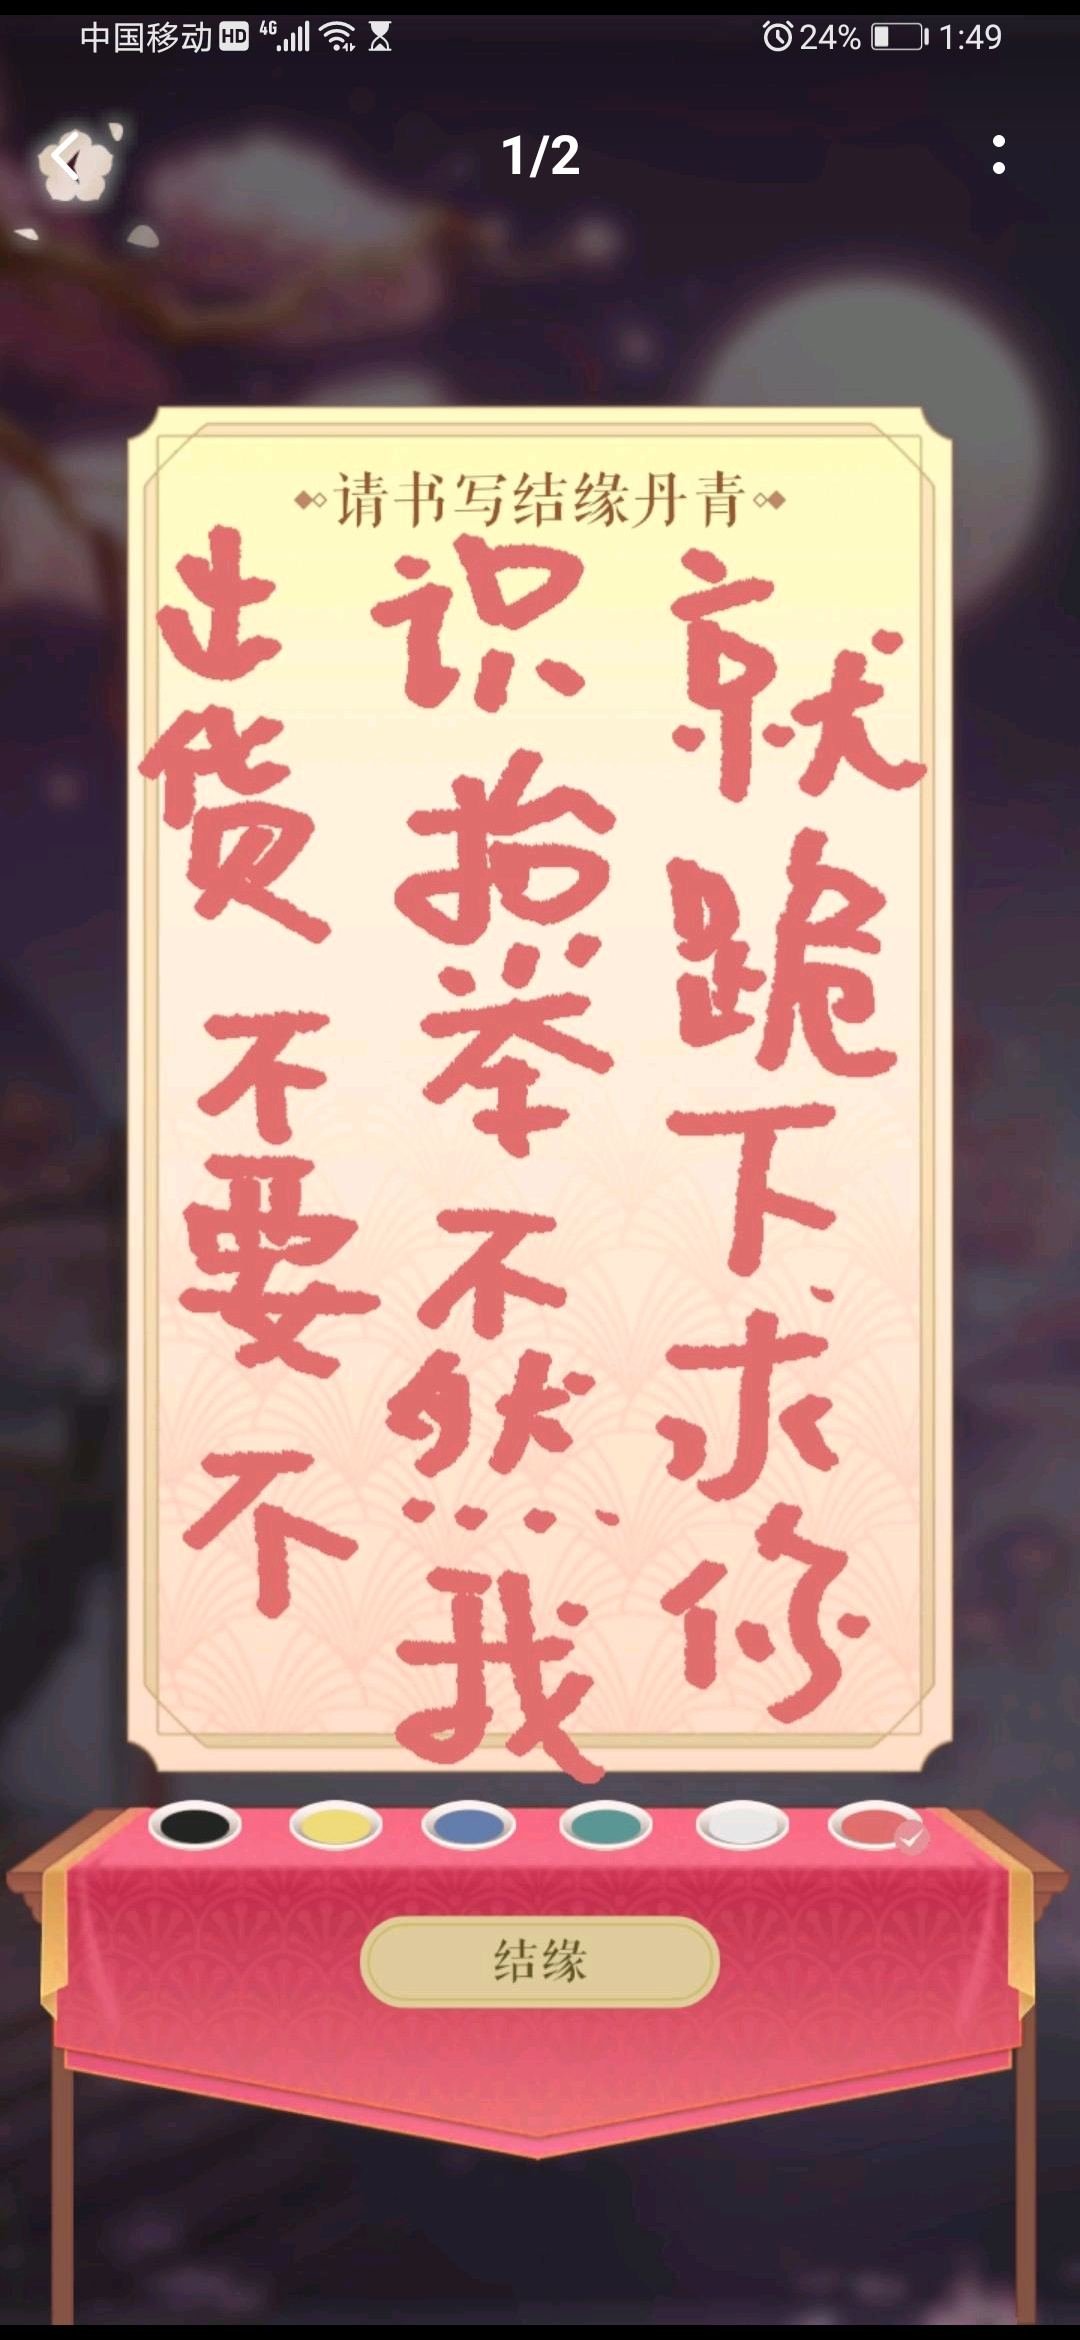 中国移动 HD 4G 24% 1:49
1/2
请书写结缘丹青
出货不要不
识抬举不然我
就跪下求你
结缘